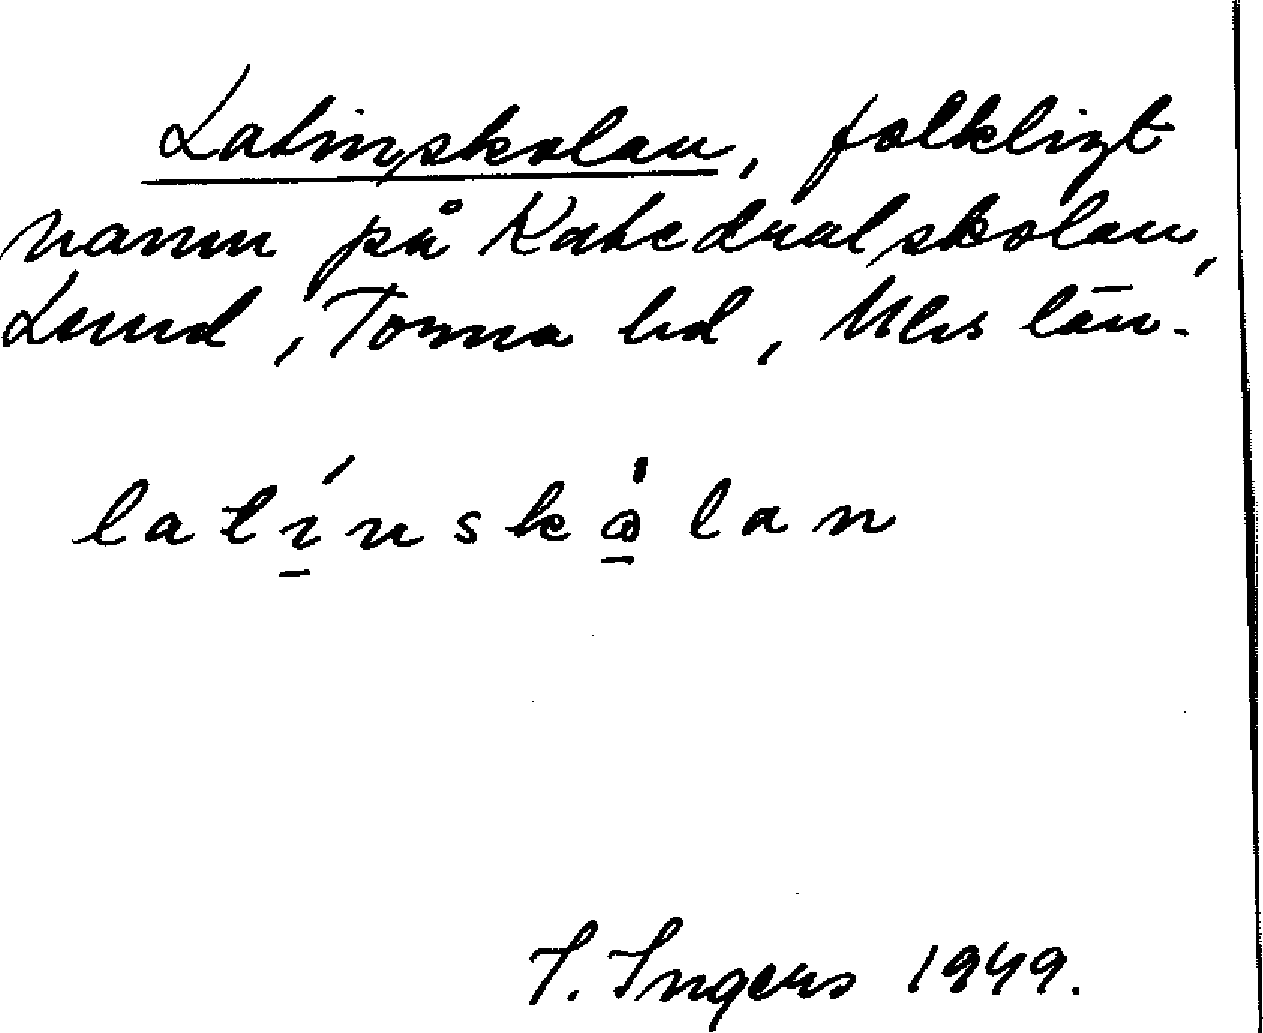 Latinskolan, folkligt
namn på Katedralskolan,
Lund, Torna hd, Mlms län.
latínskå̀lan
I. Ingers 1949.